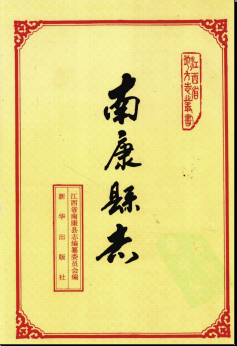 江西省
地方志丛書
南康縣志
江西省南康县志编纂委员会编
新华出版社